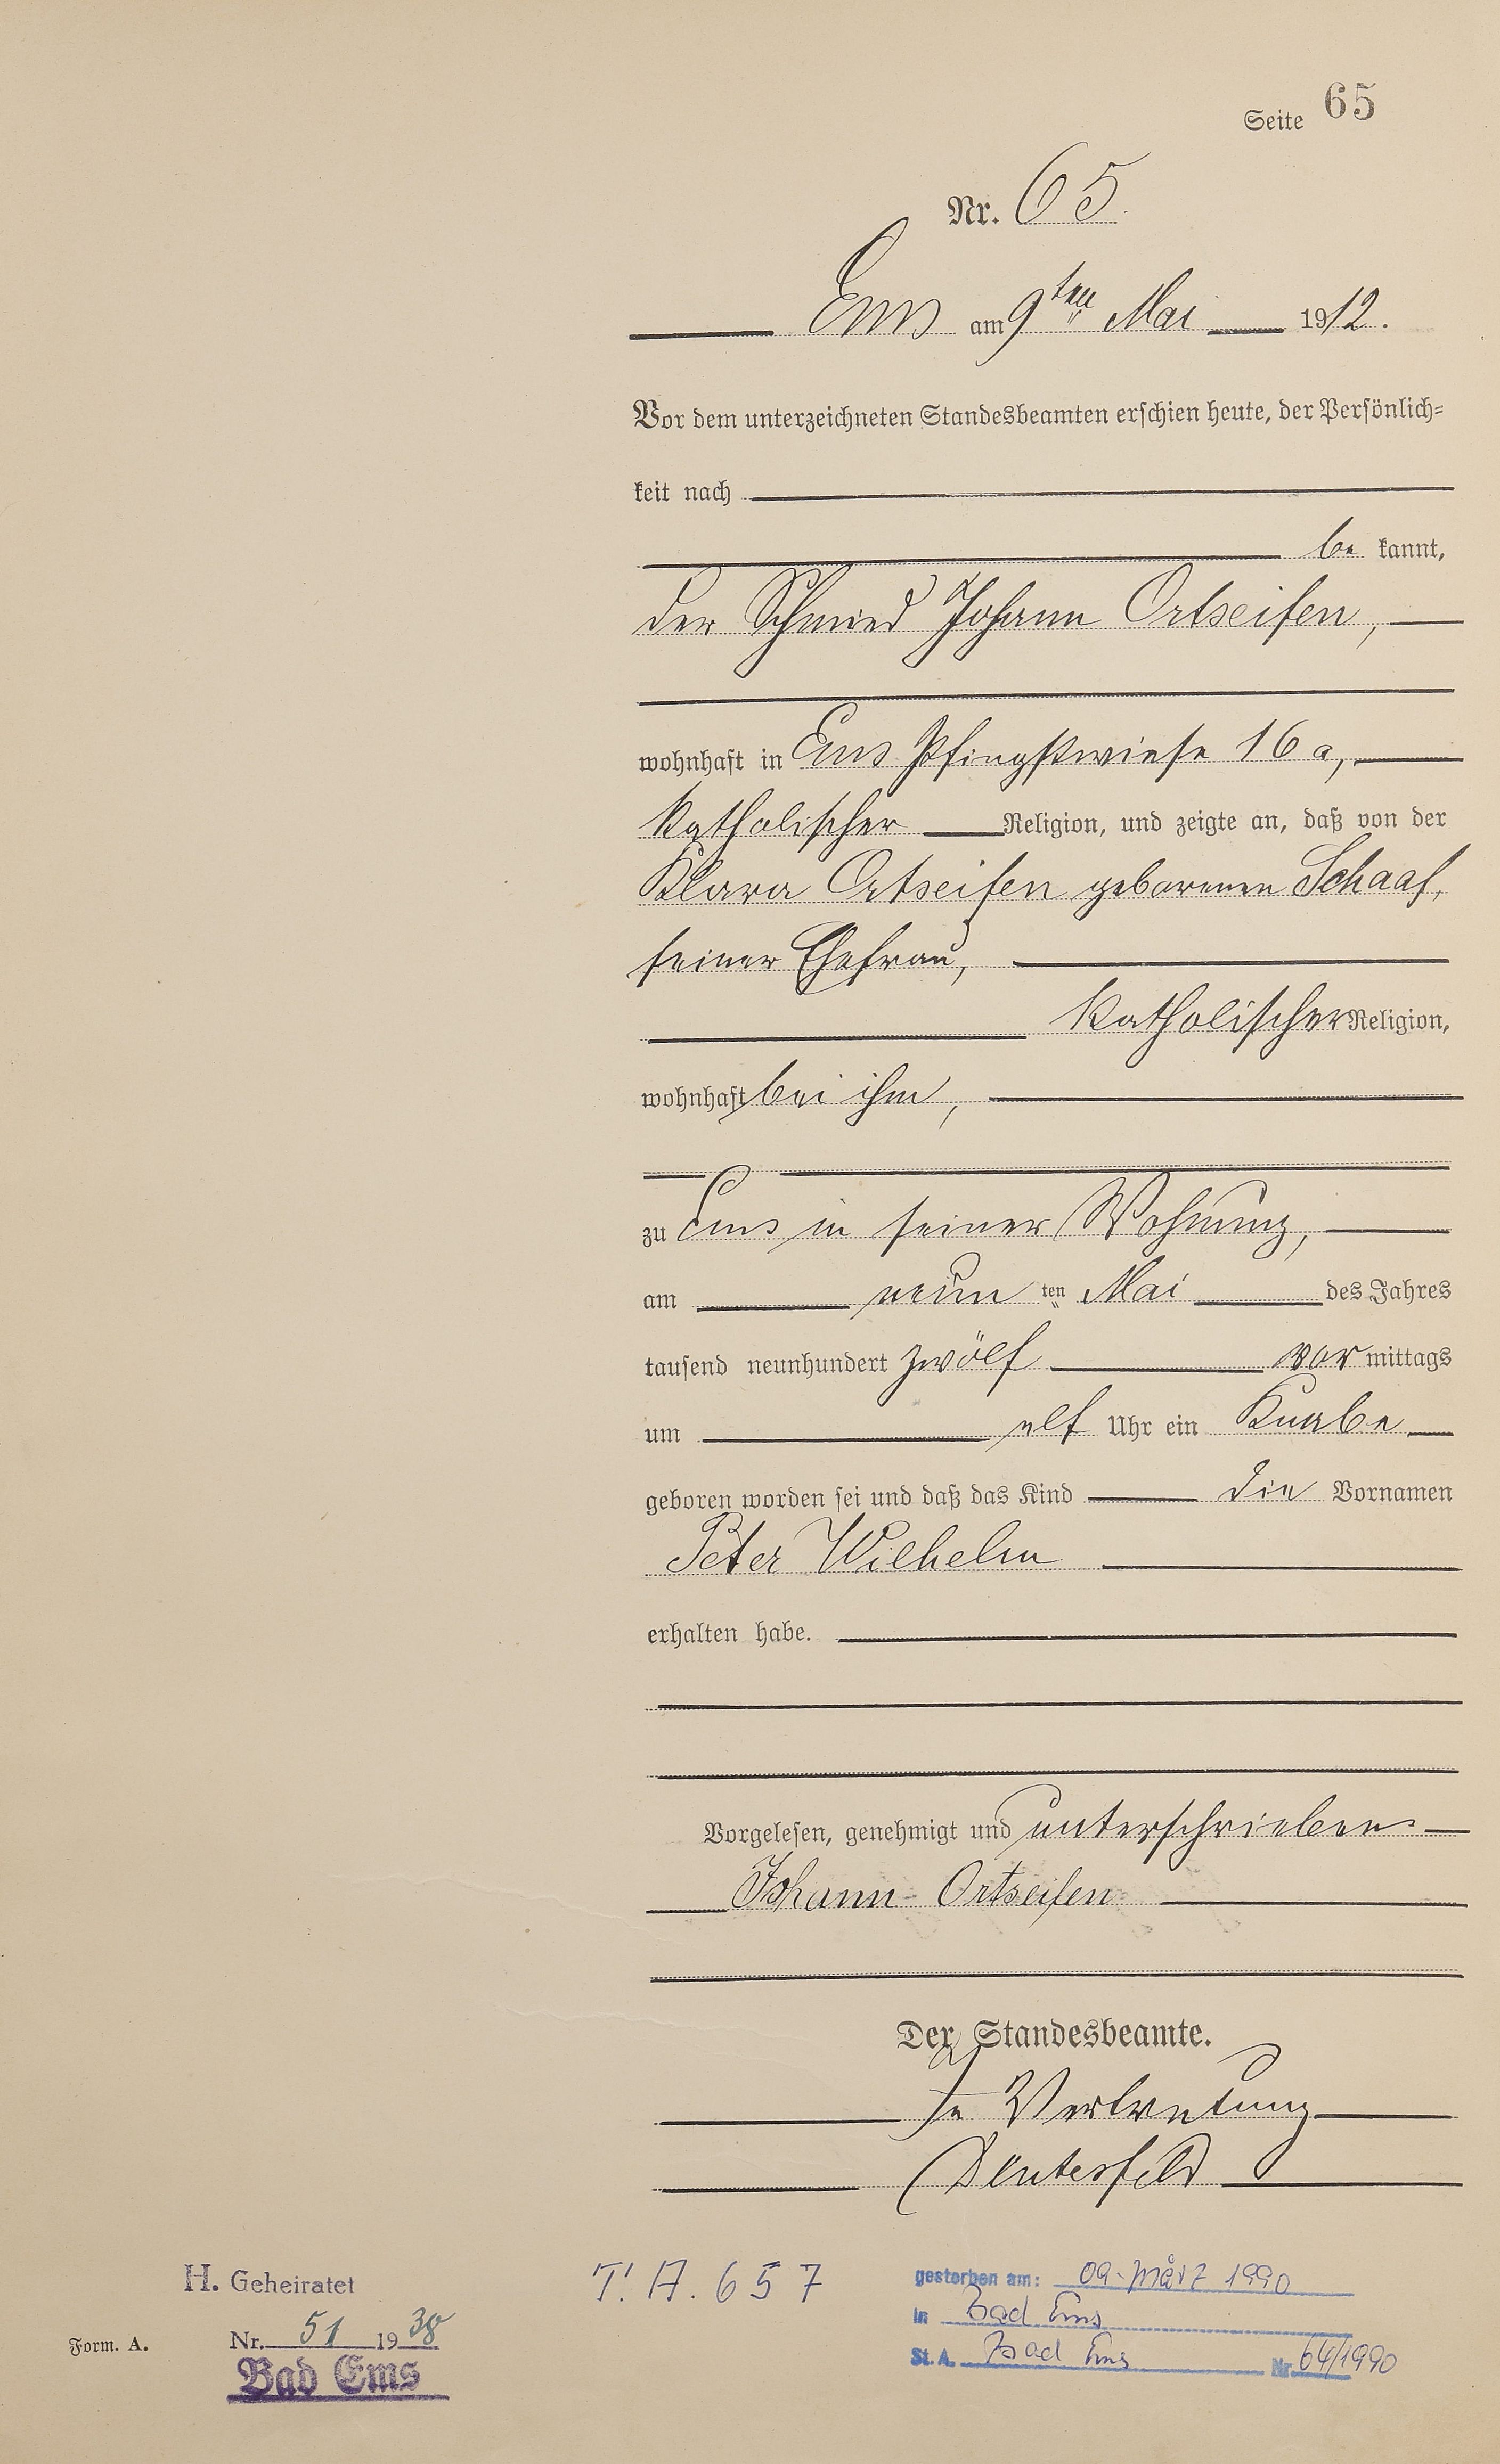 Seite 65
Nr. 65.
Ems am 9ten Mai 1912.
Vor dem unterzeichneten Standesbeamten erschien heute, der Persönlich-
keit nach
be kannt,
der Schmied Johann Ortseifen,
wohnhaft in Ems Pfingstwiese 16 a,
katholischer Religion, und zeigte an, daß von der
Klara Ortseifen geborenen Schaaf,
seiner Ehefrau,
katholischer Religion,
wohnhaft bei ihm,
zu Ems in seiner Wohnung,
am neun ten Mai des Jahres
tausend neunhundert zwölf vor mittags
um elf Uhr ein Knabe
geboren worden sei und daß das Kind die Vornamen
Peter Wilhelm
erhalten habe.
Vorgelesen, genehmigt und unterschrieben
Johann Ortseifen
Der Standesbeamte.
In Vertretung
H. Geheiratet
Nr. 51 1938
Bad Ems
Form. A.
T. A. 657
gestorben am: 09. März 1990
in Bad Ems
St. A. Bad Ems Nr. 64/1990